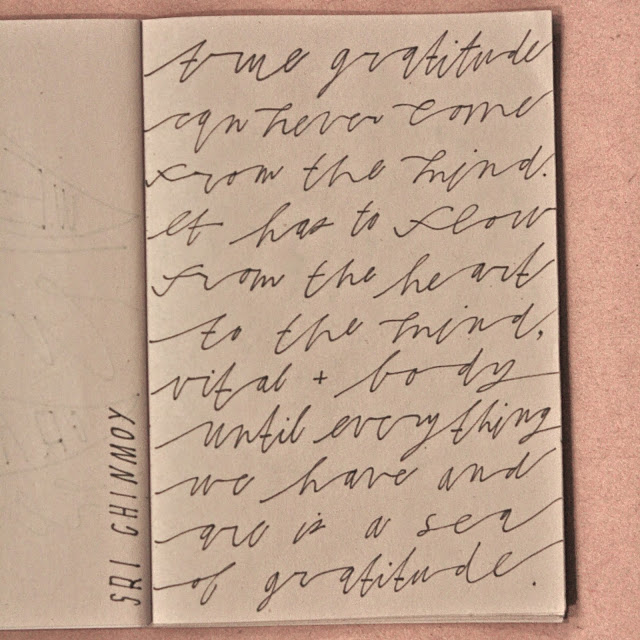 true gratitude
can never come
from the mind.
It has to flow
from the heart
to the mind,
vital + body
until everything
we have and
are is a sea
of gratitude.
SRI CHINMOY